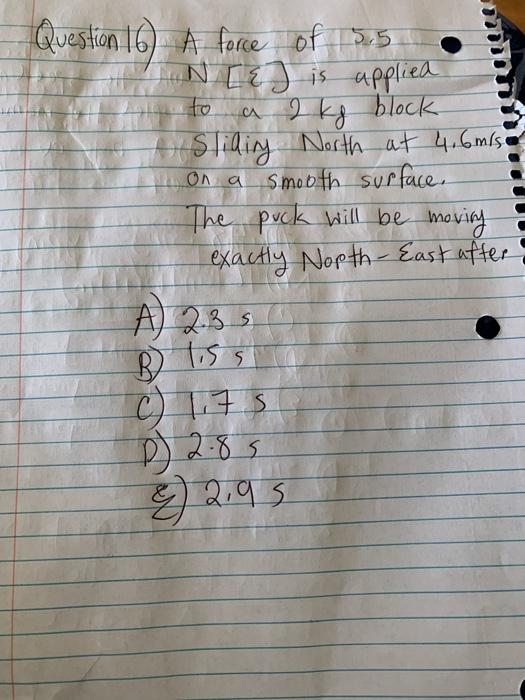 Question 16) A force of 5.5
N [E] is applied
to a 2 kg block
Sliding North at 4.6m/s
on a smooth surface.
The puck will be moving
exactly North-East after
A) 2.3 s
B) 1.5 s
C) 1.7 s
D) 2.8 s
E) 2.9 s